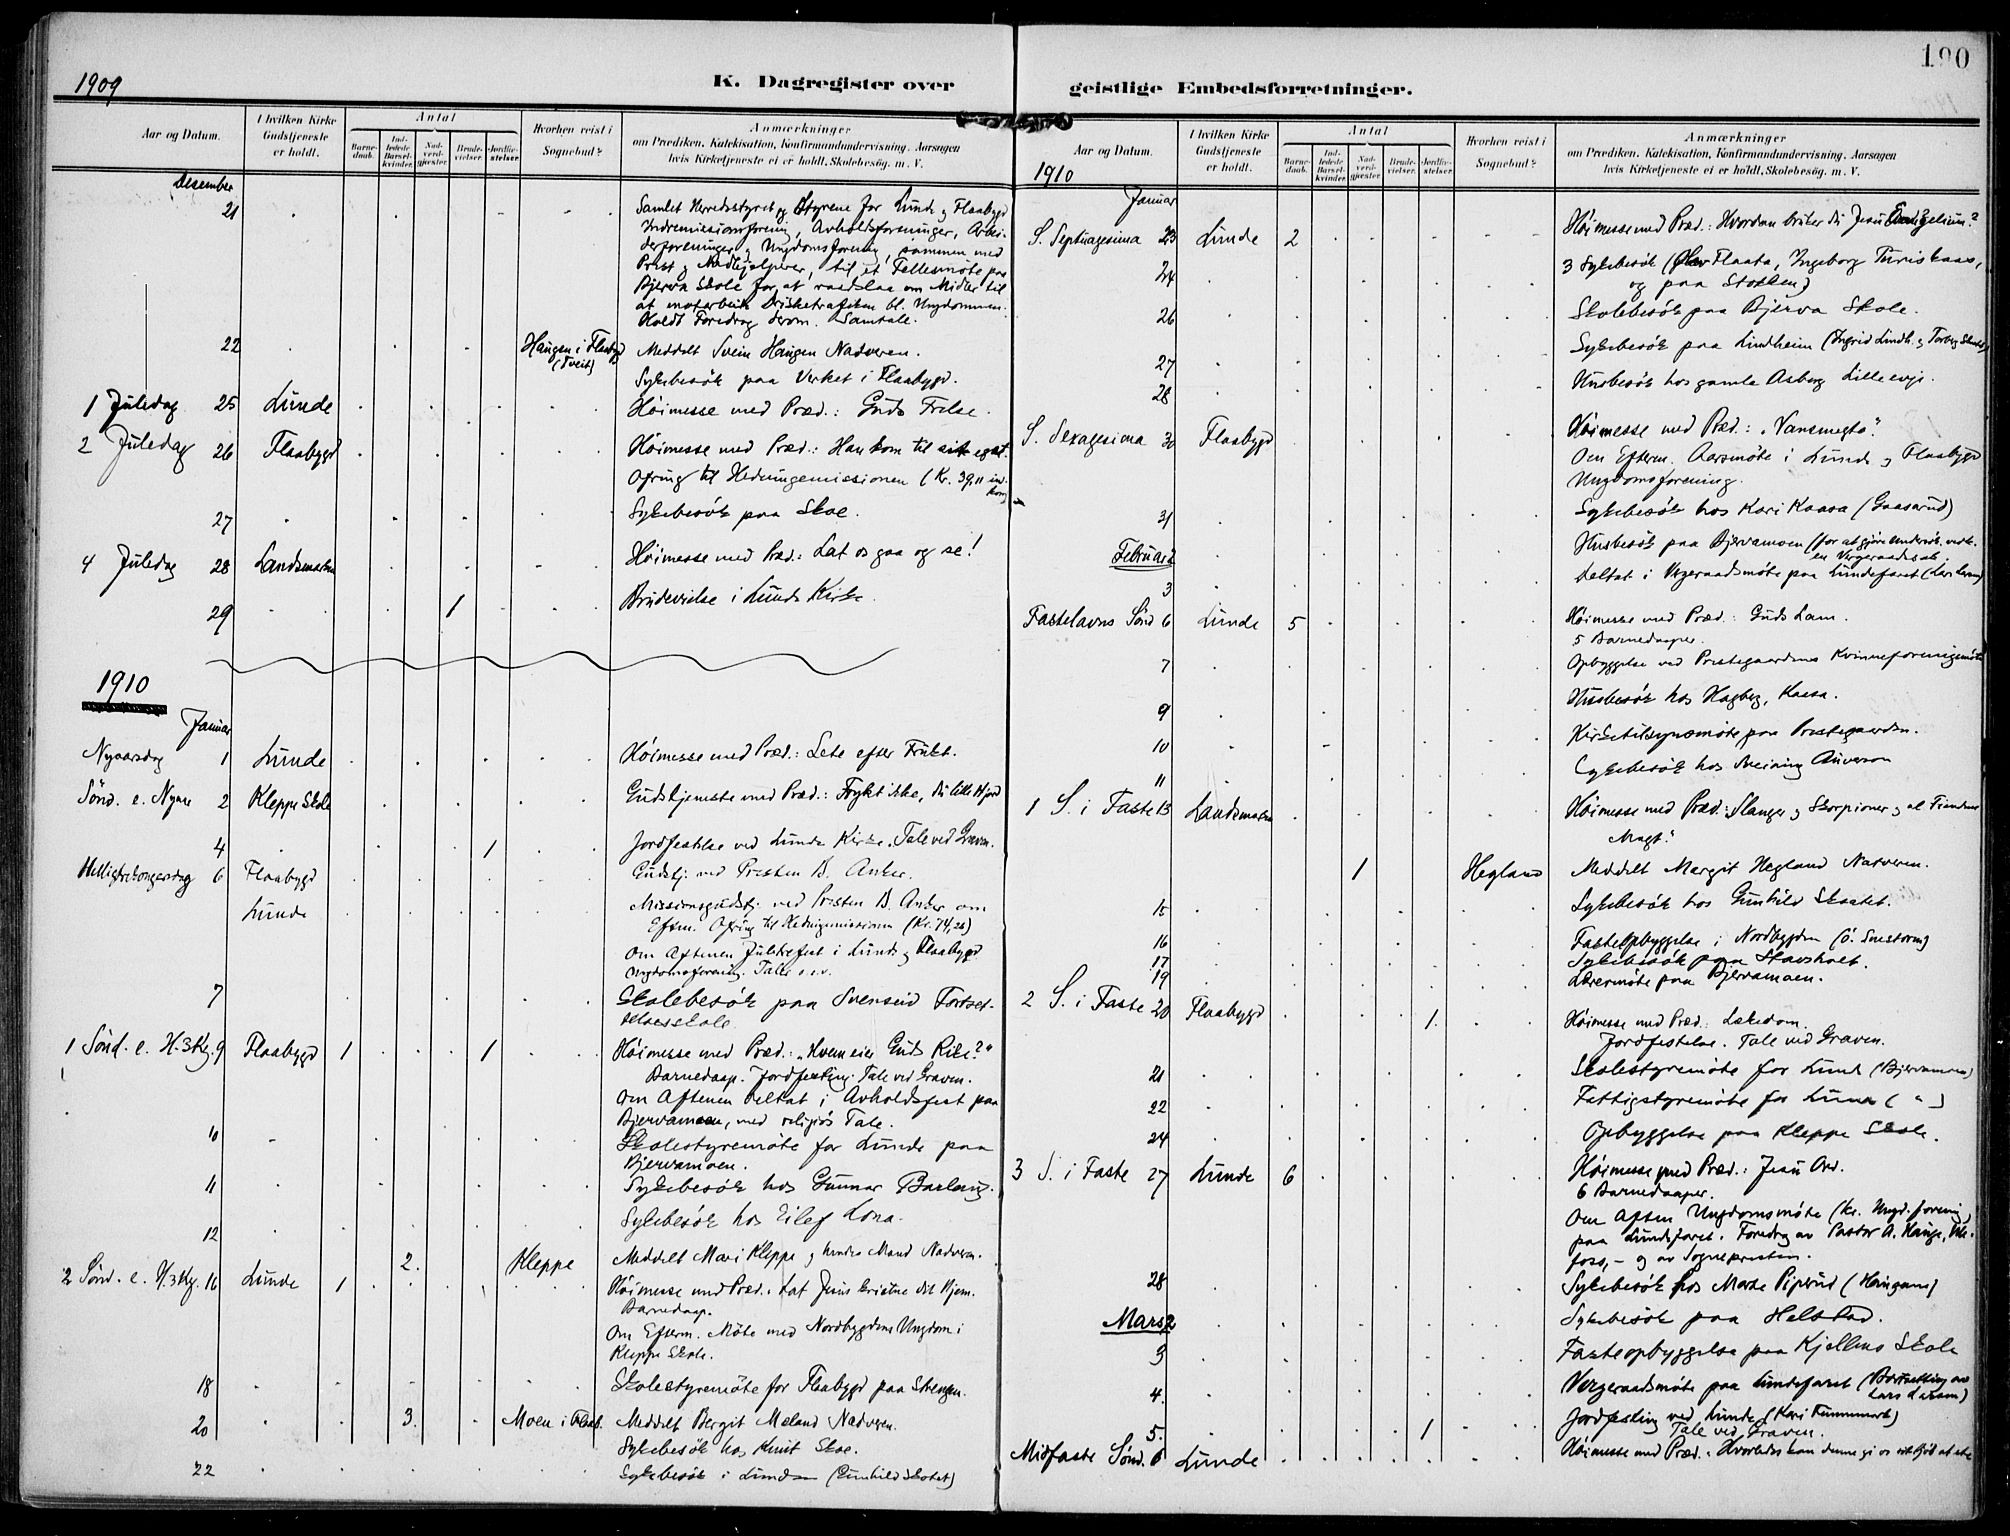 1909
K. Dagregister over
Aar og Datum.
I hvilken Kirke Gudstjeneste er holdt.
Antal
Barne-daab.
Ind-ledede Barsel-kvinder.
Nad-verd-gjester.
Brude-vielser.
Jordfæ-stelser.
Hvorhen reist i Sognebud?
Anmærkninger
om Prædiken. Katekisation, Konfirmandundervisning. Aarsagen
hvis Kirketjeneste ei er holdt. Skolebesög. m. V.
Desember
21 Samlet Herredsstyret og Styrene for Lunde og Flaabygd
Indremissionsforening, Avholdsforeninger, Arbei-
derforeninger og Ungdomsforening, sammen med
Prest og Medhjelpere, til et Fellesmöte paa
Bjerva Skole for at raadslaa om Midler til
at motarbeide Drikketrafiken bl. Ungdommen.
Holdt Foredrag derom. Samtale.
22 Haugen i Flaabygd (Tveit) Meddelt Svein Haugen Nadveren.
Sykebesök paa Verket i Flaabygd.
1 Juledag 25 Lunde Höimesse med Præd.: Guds Frelse.
2 Juledag 26 Flaabygd Höimesse med Præd.: Han kom til sit eget.
Ofring til Hedningemissionen (Kr. 39,11 ind-
kom)
27 Sykebesök paa Skoe.
4 Juledag 28 Landsmarken Höimesse med Præd.: Lat os gaa og se!
29 1 Brudevielse i Lunde Kirke.
1910
Januar
Nyaarsdag 1 Lunde Höimesse med Præd.: Lete efter Frukt.
Sönd. e. Nyaar 2 Kleppe Skole Gudstjeneste med Præd.: Frykt ikke, du lille Hjord
4 1 Jordfestelse ved Lunde Kirke. Tale ved Graven.
Helligtrekongersdag 6 Flaabygd Gudstj. ved Presten B. Anker.
Lunde Missionsgudstj. ved Presten B. Anker om
Efterm. Ofring til Hedningemissionen (Kr. 74,26)
Om Aftenen Juletrefest i Lunde og Flaabygd
Ungdomsforening. Tale o.s.v.
7 Skolebesök paa Svenseid Fortset-
telsesskole.
1 Sönd. e. H. 3 Kg. 9 Flaabygd 1 1 Höimesse med Præd.: "Hvem eier Guds Rike?"
Barnedaap. Jordfesting. Tale ved Graven.
Om Aftenen deltat i Avholdsfest paa
Bjervamoen, med religiös Tale.
10 Skolestyremöte for Lunde paa
Bjervamoen.
11 Sykebesök hos Gunnar Barlaug.
12 Sykebesök hos Eilef Lona.
2. Kleppe Meddelt Mari Kleppe og hendes Mand Nadveren.
2 Sönd. e. H. 3 Kg. 16 Lunde 1 Höimesse med Præd.: Lat Jesus kristne dit Hjem.
Barnedaap.
Om Efterm. Möte med Nordbygdens Ungdom i
Kleppe Skole.
18 Skolestyremöte for Flaabygd paa Strengen.
20 3. Moen i Flaab. Meddelt Bergit Meland Nadveren.
Sykebesök hos Knut Skoe.
22 Sykebesök i Lunden (Gunhild Skotet)
190
geistlige Embedsforretninger.
Aar og Datum.
I hvilken Kirke Gudstjeneste er holdt.
Antal
Barne-daab.
Ind-ledede Barsel-kvinder.
Nad-verd-gjester.
Brude-vielser.
Jordfæ-stelser.
Hvorhen reist i Sognebud?
Anmærkninger
om Prædiken. Katekisation, Konfirmandundervisning. Aarsagen
hvis Kirketjeneste ei er holdt, Skolebesög. m. V.
1910
Januar
S. Septuagesima 23 Lunde 2 Höimesse med Præd.: Hvordan bruker du Jesu Evangelium?
24 3 Sykebesök (Olav Flaata, Ingeborg Turiskaas,
og paa Stokken)
26 Skolebesök paa Bjerva Skole.
27 Sykebesök paa Lundheim (Ingrid Lindh. og Torbjg
28 Husbesök hos gamle Asberg Lilleevje.
S. Sexagesima 30 Flaabygd Höimesse med Præd.: "Vansmegte".
Om Efterm. Aarsmöte i Lunde og Flaabygd
Ungdomsforening.
31 Sykebesök hos Kari Kaasa (Gaasarud)
Februar 2 Husbesök paa Bjervamoen (for at gjöre undersök. vedk.
en Vergeraadssak.
3 Deltat i Vergeraadsmöte paa Lundefaret
Fastelavns Sönd 6 Lunde 5 Höimesse med Præd.: Guds Lam.
5 Barnedaaper.
7 Opbyggelse ved Prestegaardens Kvinneforeningsmöte
9 Husbesök hos Hagberg, Kaasa.
10 Kirketilsynsmöte paa Prestegaarden.
11 Sykebesök hos Sveinung
1 S. i Faste 13 Landsmarken Höimesse med Præd.: Slanger og Skorpioner og al Fiendens
Magt."
1 Hegland Meddelt Margit Hegland Nadveren.
15 Sykebesök hos Gunhild Skotet.
16 Fasteopbyggelse i Nordbygden (ö. Snestorm)
17 Sykebesök paa Stavsholt.
19 Lærermöte paa Bjervamoen.
2 S. i Faste 20 Flaabygd 1. Höimesse med Præd.: Lækedom.
Jordfestelse. Tale ved Graven.
21 Skolestyremöte for Lunde (Bjervamoen)
22 Fattigstyremöte for Lunde ( " )
24 Opbyggelse paa Kleppe Skole.
3 S. i Faste 27 Lunde 6 Höimesse med Præd.: Jesu Ord.
6 Barnedaaper.
Om Aften Ungdomsmöte (Kr. Ungd. forening)
paa Lundefaret. Foredrag av Pastor A. Hauge, Ule-
foss, - og av Sognepresten.
28 Sykebesök hos Marte Piperud (Haugann)
Mars 2 Sykebesök paa Helstad.
3 Fasteopbyggelse paa Kjellens Skole
4. Vergeraadsmöte paa Lundefaret (Bortsetting av
Lars Larsen)
5. 1 Jordfesting ved Lunde (Kari
Tale ved Graven.
Midfaste Sönd. 6 Lunde Höimesse med Præd.: Hvorledes kan denne gi os sit kjöd at ete